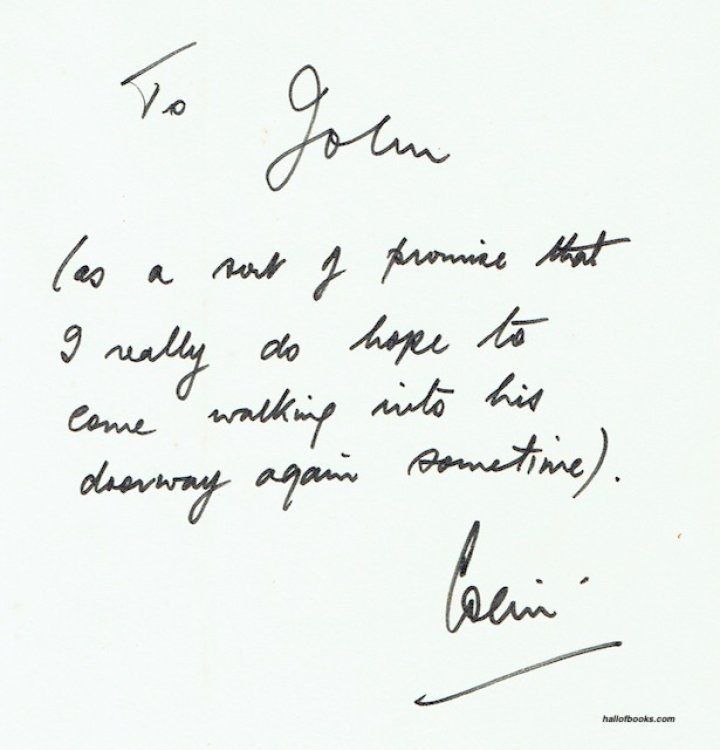 To John
(as a sort of promise that
I really do hope to
come walking into his
doorway again sometime).
Colin
hallofbooks.com